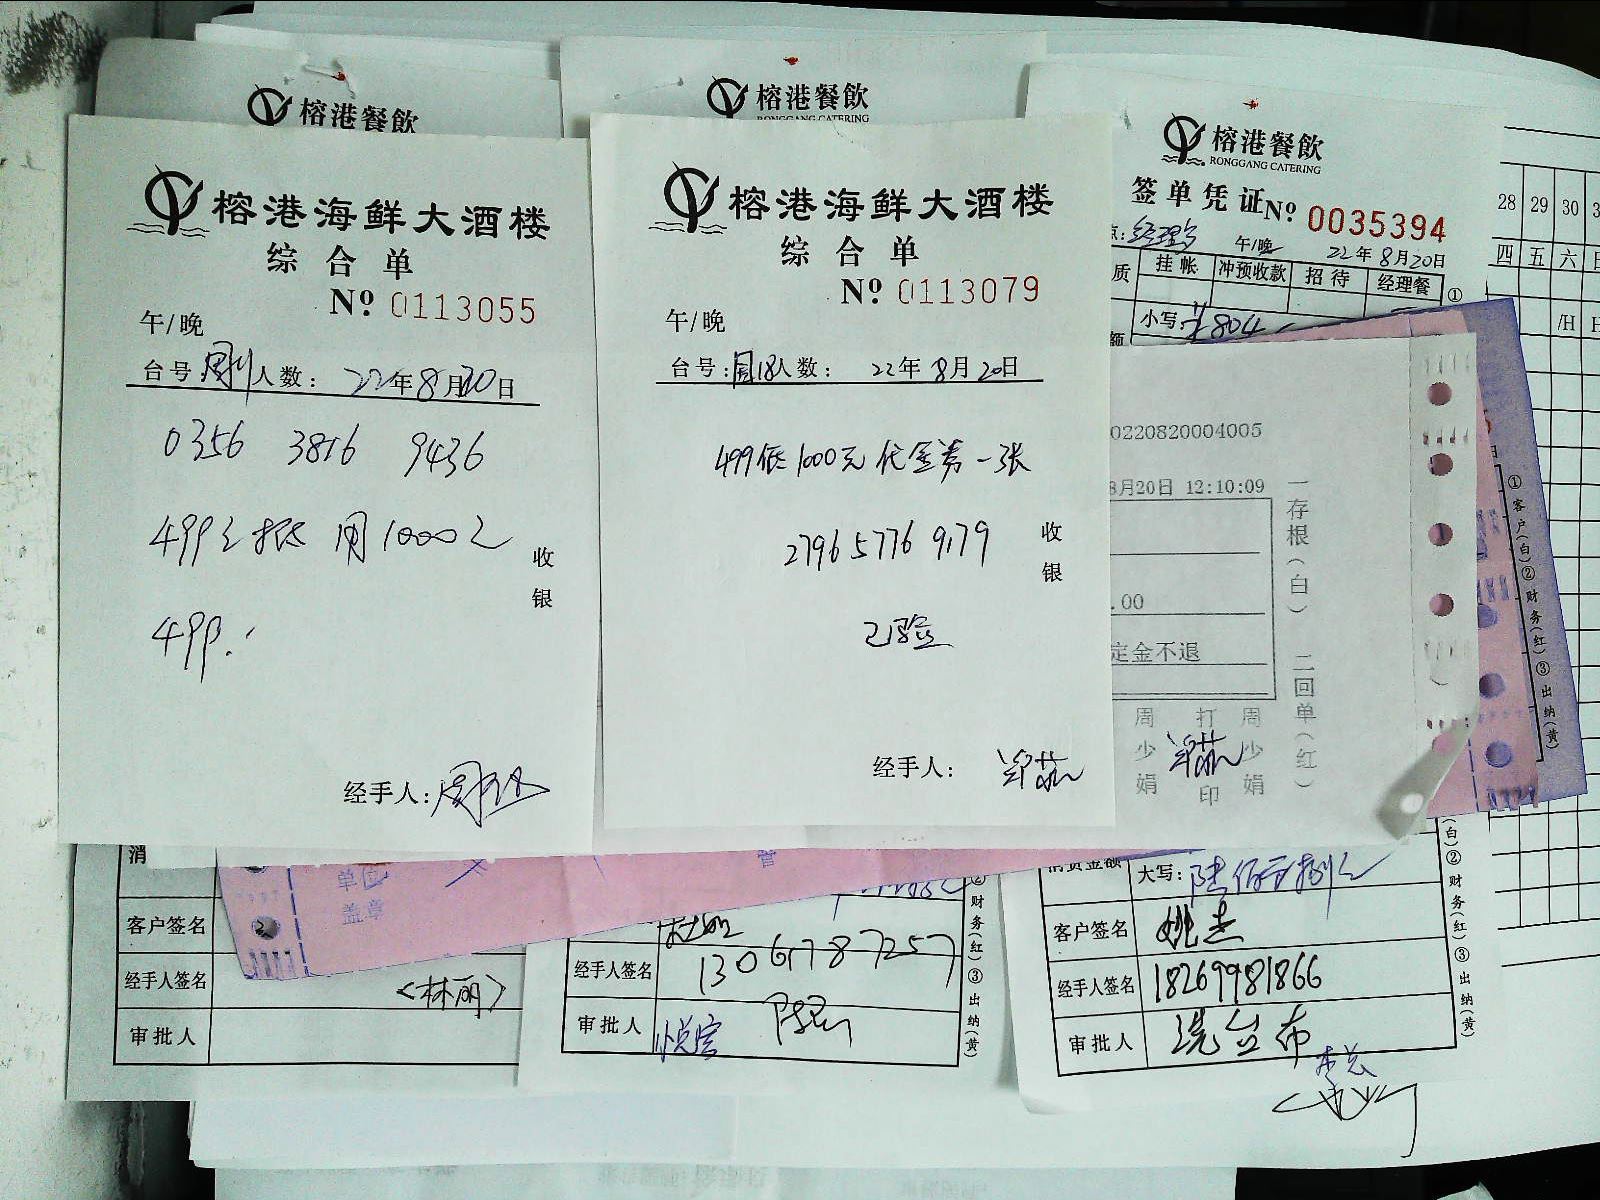 榕港餐飲
榕港餐飲
RONGGANG CATERING
榕港餐飲
RONGGANG CATERING
榕港海鲜大酒楼
综合单
№ 0113055
午/晚
台号 人数: 22年8月20日
0356 3816 9436
499元抵用1000元
499.
收银
经手人:
榕港海鲜大酒楼
综合单
№ 0113079
午/晚
台号: 人数: 22年8月20日
499低1000元代金券一张
2796 5776 9179
已验
收银
经手人:
签单凭证 № 0035394
午/晚 22年8月20日
质 挂帐 冲预收款 招待 经理餐
额 小写:¥804
①
0220820004005
8月20日 12:10:09
.00
定金不退
一存根(白) 二回单(红)
周少娟 打印 周少娟
①客户(白)②财务(红)③出纳(黄)
28 29 30
四 五 六
消
单位
盖章
客户签名
经手人签名 <林丽>
审批人
经手人签名 13061787257
审批人
②财务(红)③出纳(黄)
消费金额 大写:
客户签名 姚杰
经手人签名 18269981866
审批人 洗台布
李总
(白)②财务(红)③出纳(黄)